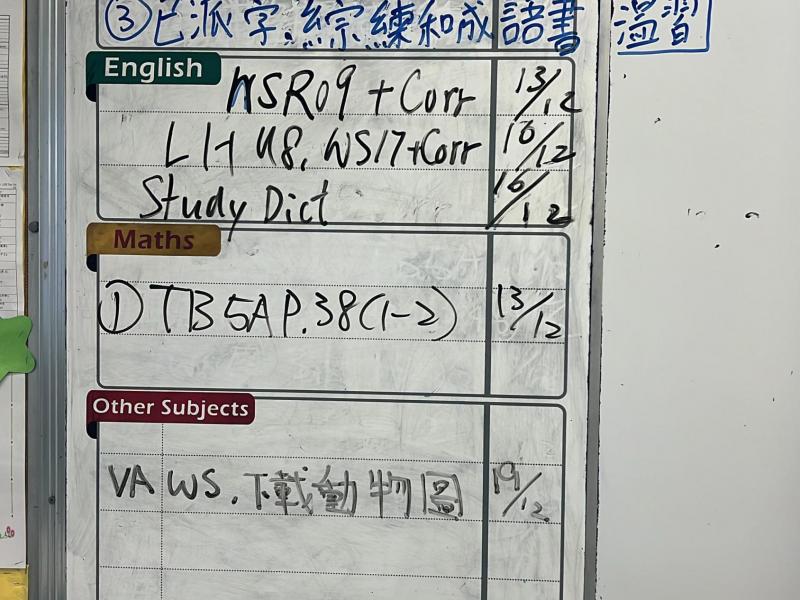 ③已派字,綜練和成語書 溫習
English
NSR09 + Corr 13/12
LH U8, WS17+Corr 16/12
Study Dict 16/12
Maths
① TB 5A P.38(1-2) 13/12
Other Subjects
VA WS. 下載動物圖 19/12